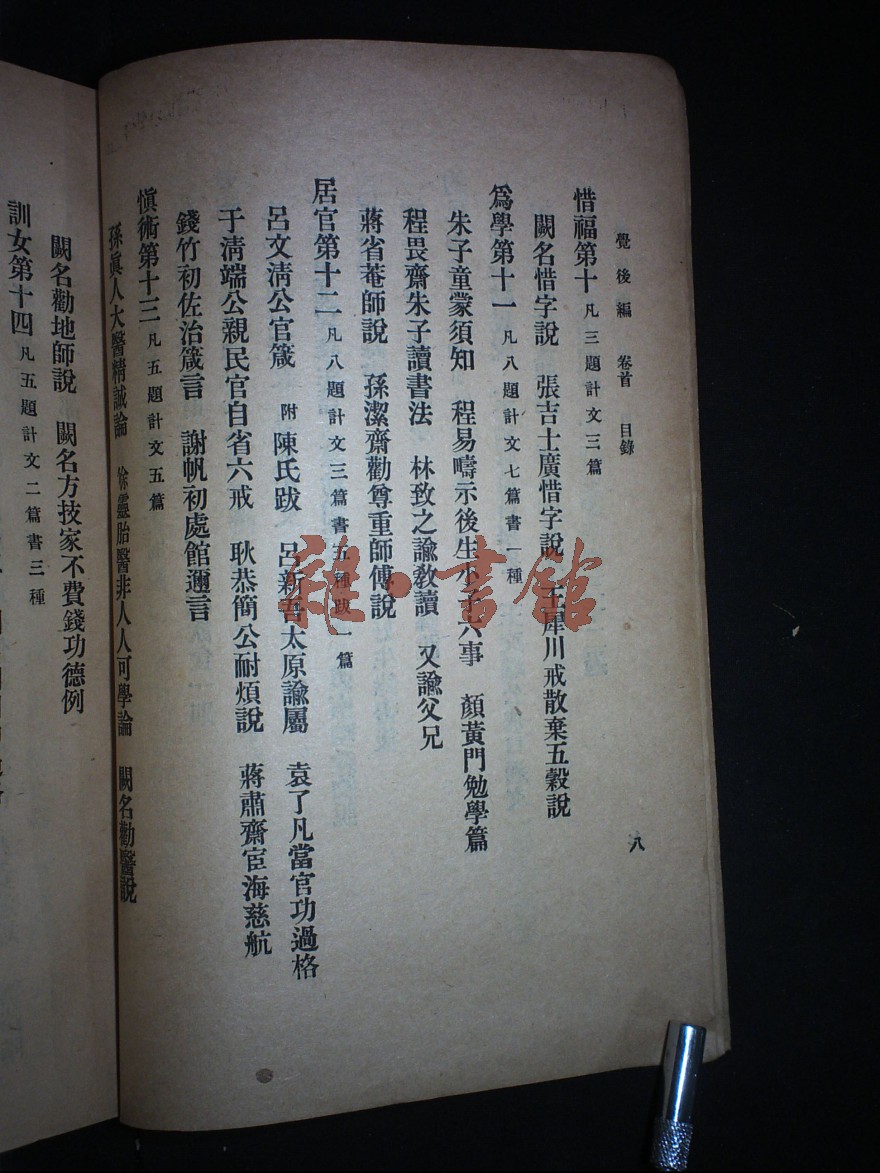 覺後編 卷首 目錄 八
惜福第十 凡三題計文三篇
闕名惜字說 張吉士廣惜字說 王犀川戒散棄五穀說
爲學第十一 凡八題計文七篇書一種
朱子童蒙須知 程易疇示後生小子六事 顏黃門勉學篇
程畏齋朱子讀書法 林致之諭教讀 又諭父兄
蔣省菴師說 孫潔齋勸尊重師傅說
居官第十二 凡八題計文三篇書五種跋一篇
呂文淸公官箴 附陳氏跋 呂新吾太原諭屬 袁了凡當官功過格
于淸端公親民官自省六戒 耿恭簡公耐煩說 蔣肅齋宦海慈航
錢竹初佐治箴言 謝帆初處館邇言
愼術第十三 凡五題計文五篇
孫眞人大醫精誠論 徐靈胎醫非人人可學論 闕名勸醫說
闕名勸地師說 闕名方技家不費錢功德例
訓女第十四 凡五題計文二篇書三種
雜·書館